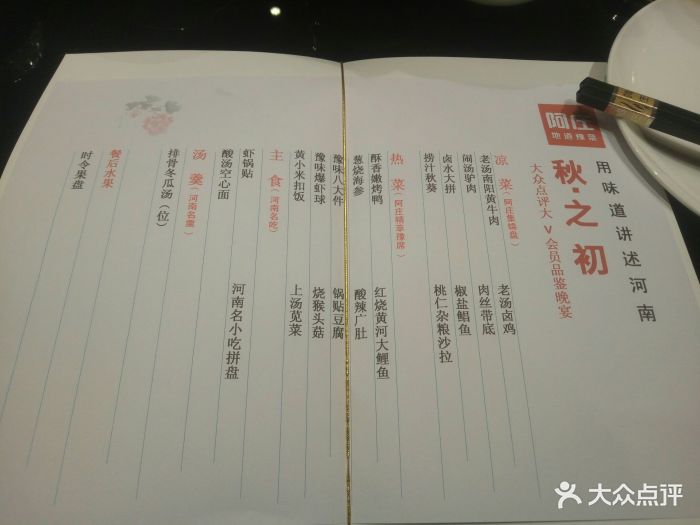 阿庄
地道豫菜
用味道讲述河南
秋·之初
大众点评大V会员品鉴晚宴
凉菜(阿庄集锦盘)
老汤南阳黄牛肉
老汤卤鸡
闹汤驴肉
肉丝带底
卤水大拼
椒盐鲳鱼
捞汁秋葵
桃仁杂粮沙拉
热菜(阿庄精萃豫席)
酥香嫩烤鸭
红烧黄河大鲤鱼
葱烧海参
酸辣广肚
豫味八大件
锅贴豆腐
豫味爆虾球
烧猴头菇
黄小米扣饭
上汤苋菜
主食(河南名吃)
虾锅贴
河南名小吃拼盘
酸汤空心面
汤羹(河南名羹)
排骨冬瓜汤(位)
餐后水果
时令果盘
大众点评